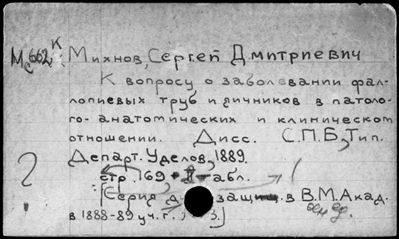 М662 К Михнов, Сергей Дмитриевич
К вопросу о заболевании фал-
лопиевых труб и яичников в патоло-
го-анатомических и клиническом
отношении. Дисс. С.П.Б, Тип.
Департ. Уделов, 1889.
стр. 169 + II табл.
[Серия защищ. в В.М. Акад.
в 1888-89 уч. г.; 3.]